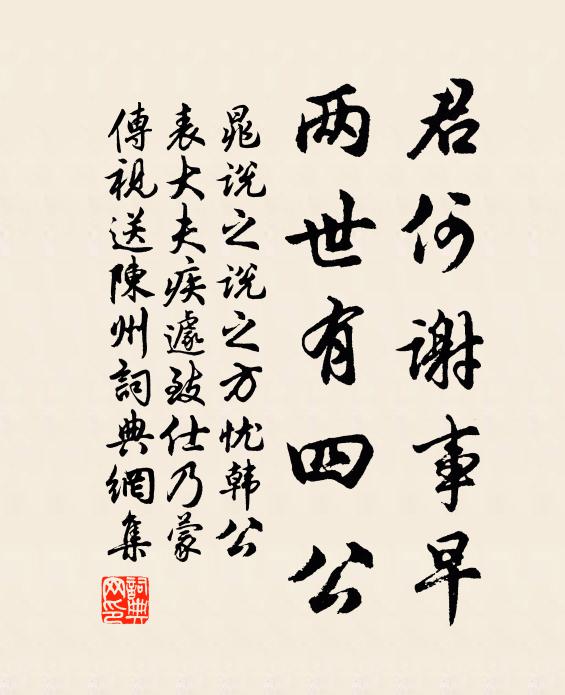 君何谢事早
两世有四公
晁说之说之方忧韩公
表大夫疾遽致仕乃蒙
傳視送陳州詞典網集
詞典網印